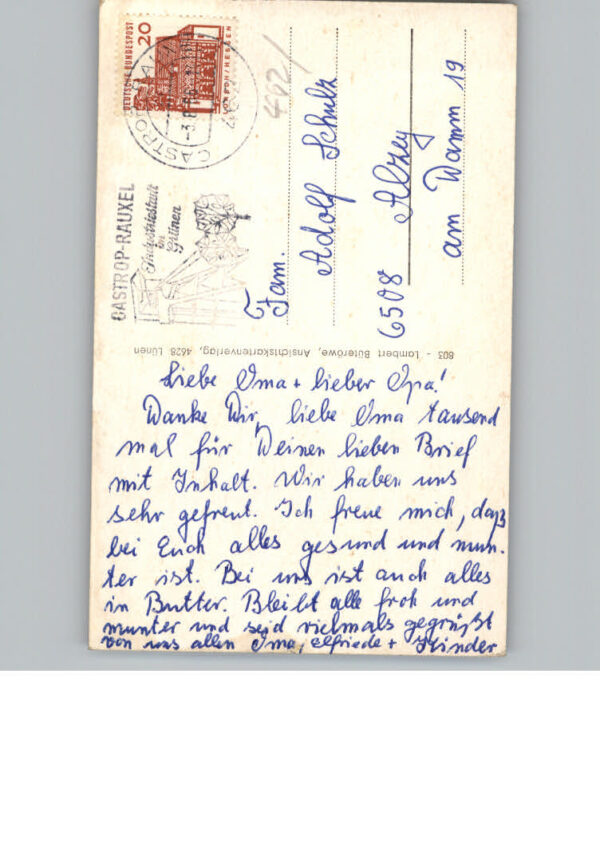 DEUTSCHE BUNDESPOST
20
LORSCH/HESSEN
CASTROP-RAUXEL
CASTROP-RAUXEL
Industriestadt
im
Grünen
462/
Fam.
Adolf Schulz
6508 Alzey
am Damm 19
803 - Lambert Büteröwe, Ansichtskartenverlag, 4628 Lünen
Liebe Oma + lieber Opa!
Danke Dir, liebe Oma tausend
mal für Deinen lieben Brief
mit Inhalt. Wir haben uns
sehr gefreut. Ich freue mich, daß
bei Euch alles gesund und mun-
ter ist. Bei uns ist auch alles
in Butter. Bleibt alle froh und
munter und seid vielmals gegrüßt
von uns allen Oma, Elfriede + Kinder